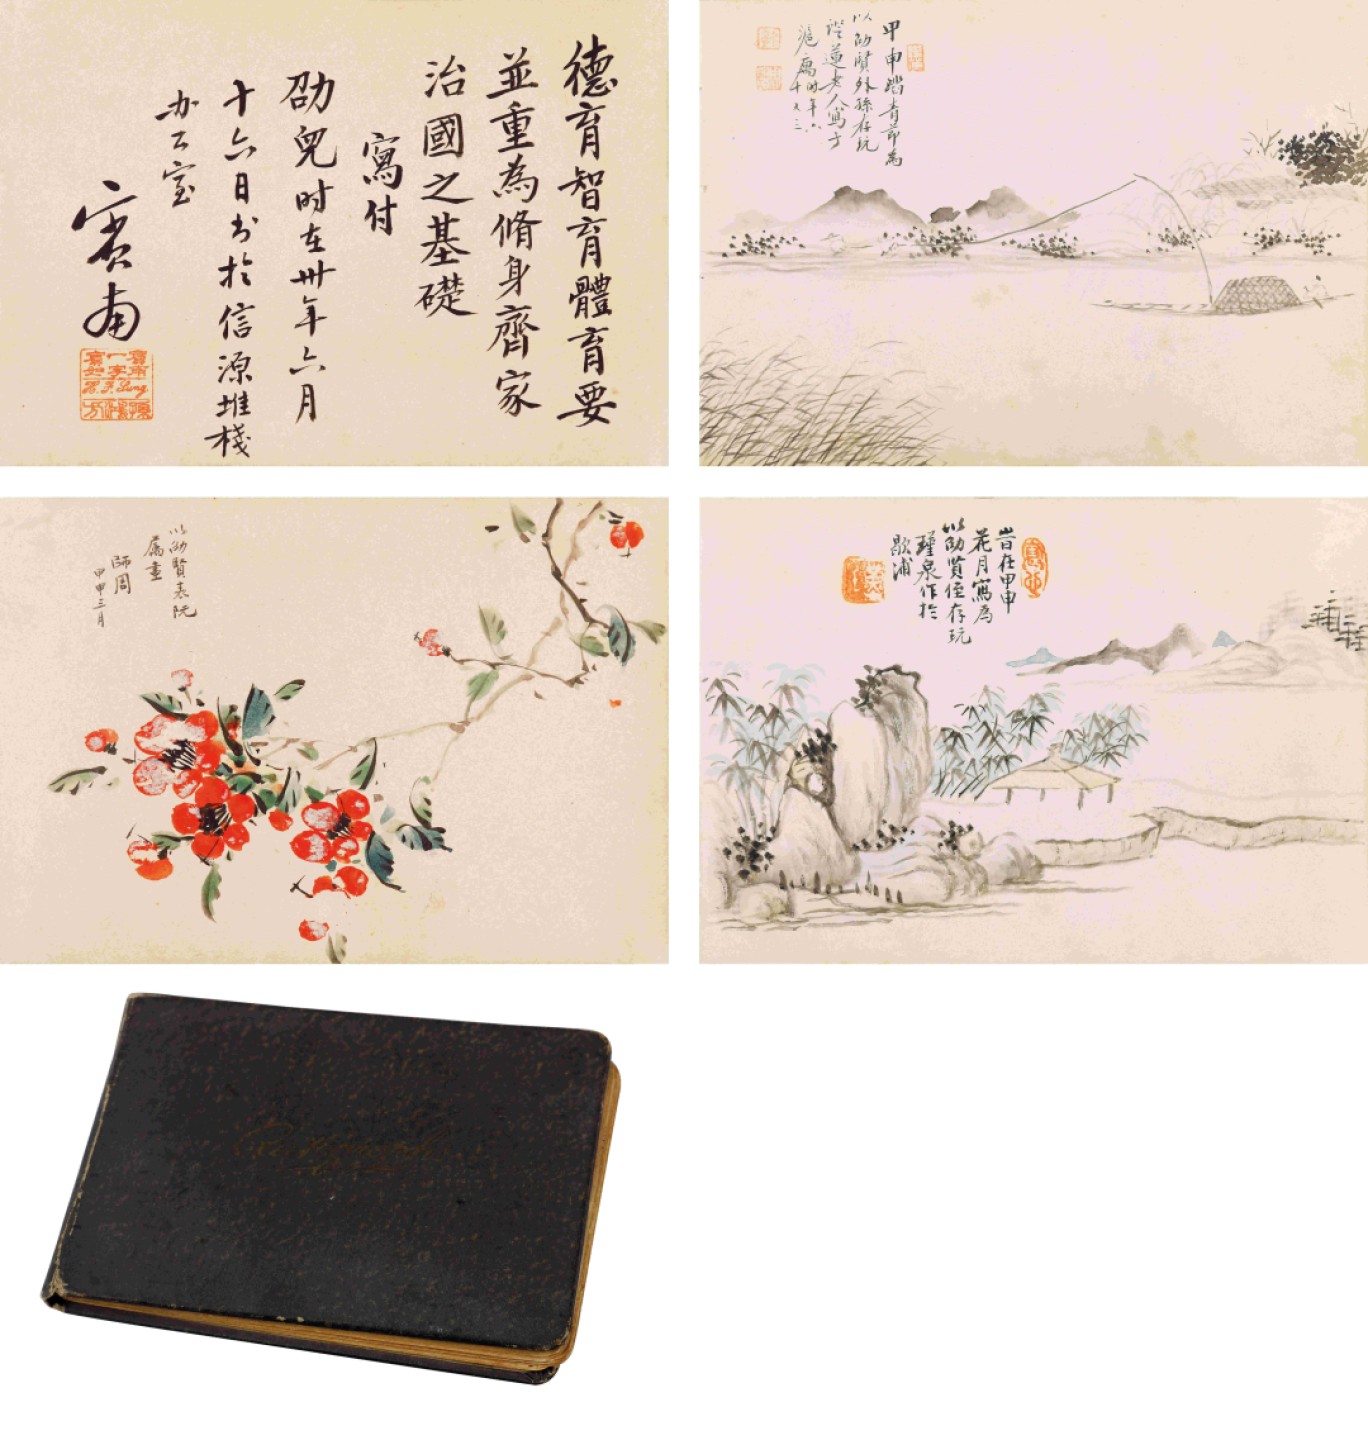 德育智育體育要
並重為脩身齊家
治國之基礎
寫付
劭兒时在卅年六月
十六日书於信源堆栈
办公室
賓甫
甲申踏青節為
以劭賢外孫存玩
證蓮老人寫于
滬寓时年六
十又三
以劭賢表阮
屬畫
師周
甲申三月
岀在甲申
花月寫為
以劭贤侄存玩
瑾泉作於
歇浦